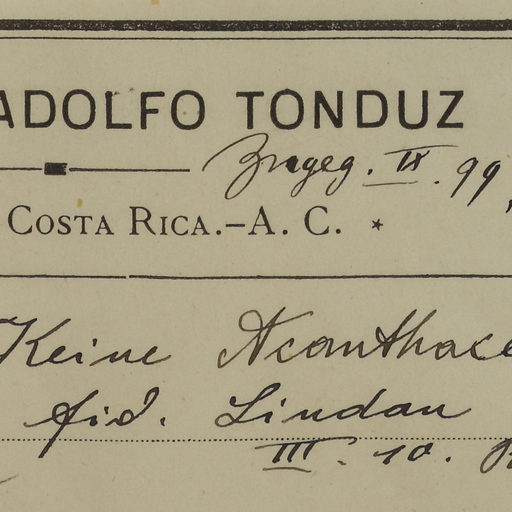 ADOLFO TONDUZ
Zugeg. IX. 99
COSTA RICA.–A. C. *
Keine Acanthace
fid. Lindau
III. 10.